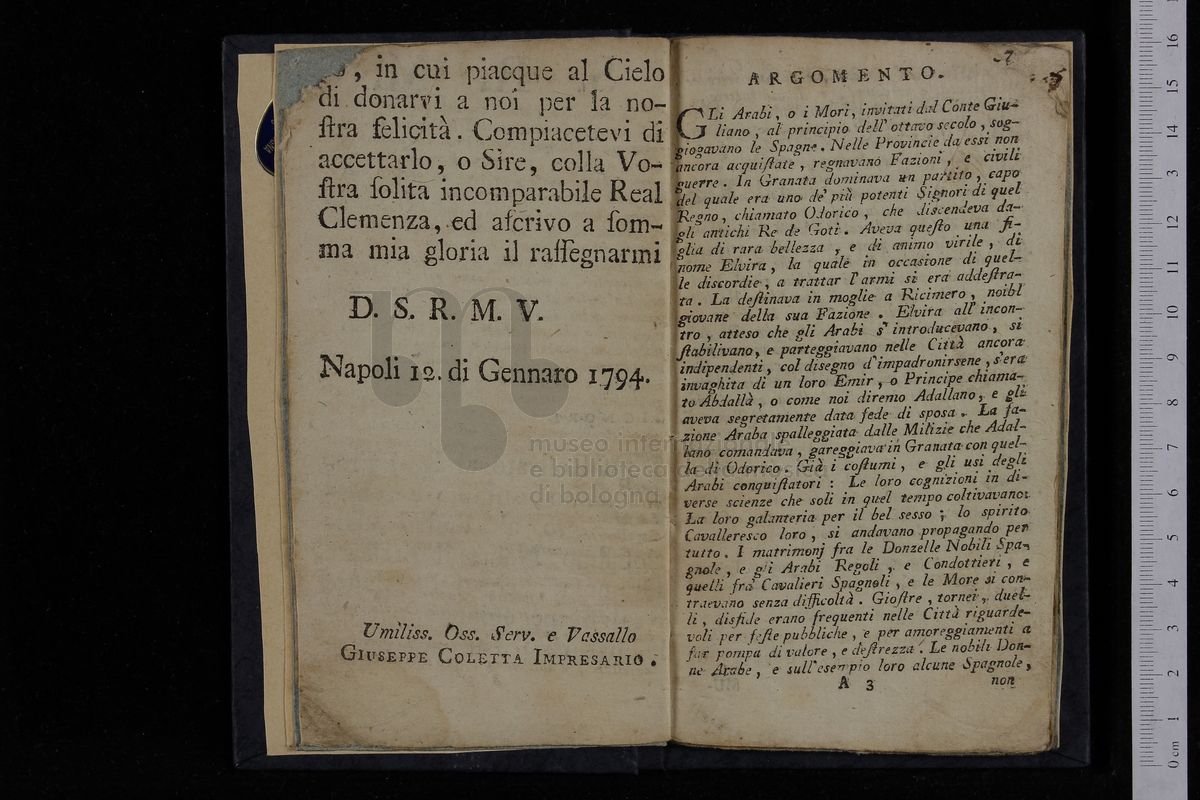 , in cui piacque al Cielo
di donarvi a noi per la no-
ſtra felicità. Compiacetevi di
accettarlo, o Sire, colla Vo-
ſtra ſolita incomparabile Real
Clemenza, ed aſcrivo a ſom-
ma mia gloria il raſſegnarmi
D. S. R. M. V.
Napoli 12. di Gennaro 1794.
Umiliss. Oss. Serv. e Vassallo
GIUSEPPE COLETTA IMPRESARIO.
ARGOMENTO.
GLi Arabi, o i Mori, invitati dal Conte Giu-
liano, al principio dell' ottavo secolo, sog-
giogavano le Spagne. Nelle Provincie da essi non
ancora acquiſtate, regnavano Fazioni, e civili
guerre. In Granata dominava un partito, capo
del quale era uno de' più potenti Signori di quel
Regno, chiamato Odorico, che discendeva da-
gli antichi Re de Goti. Aveva queſto una fi-
glia di rara bellezza, e di animo virile, di
nome Elvira, la quale in occasione di quel-
le discordie, a trattar l'armi si era addeſtra-
ta. La deſtinava in moglie a Ricimero, noibl
giovane della sua Fazione. Elvira all' incon-
tro, atteso che gli Arabi s' introducevano, si
ſtabilivano, e parteggiavano nelle Città ancora
indipendenti, col disegno d'impadronirsene, s'era
invaghita di un loro Emir, o Principe chiama-
to Abdallà, o come noi diremo Adallano, e gli
aveva segretamente data fede di sposa. La fa-
zione Araba spalleggiata dalle Milizie che Adal-
lano comandava, gareggiava in Granata con quel-
la di Odorico. Già i coſtumi, e gli usi degli
Arabi conquiſtatori: Le loro cognizioni in di-
verse scienze che soli in quel tempo coltivavano:
La loro galanteria per il bel sesso; lo spirito
Cavalleresco loro, si andavano propagando per
tutto. I matrimonj fra le Donzelle Nobili Spa-
gnole, e gli Arabi Regoli, e Condottieri, e
quelli fra Cavalieri Spagnoli, e le More si con-
traevano senza difficoltà. Gioſtre, tornei, duel-
li, disfide erano frequenti nelle Città riguarde-
voli per feſte pubbliche, e per amoreggiamenti a
far pompa di valore, e deſtrezza. Le nobili Don-
ne Arabe, e sull'esempio loro alcune Spagnole,
A 3
non
museo internazionale
e biblioteca della musica
di bologna